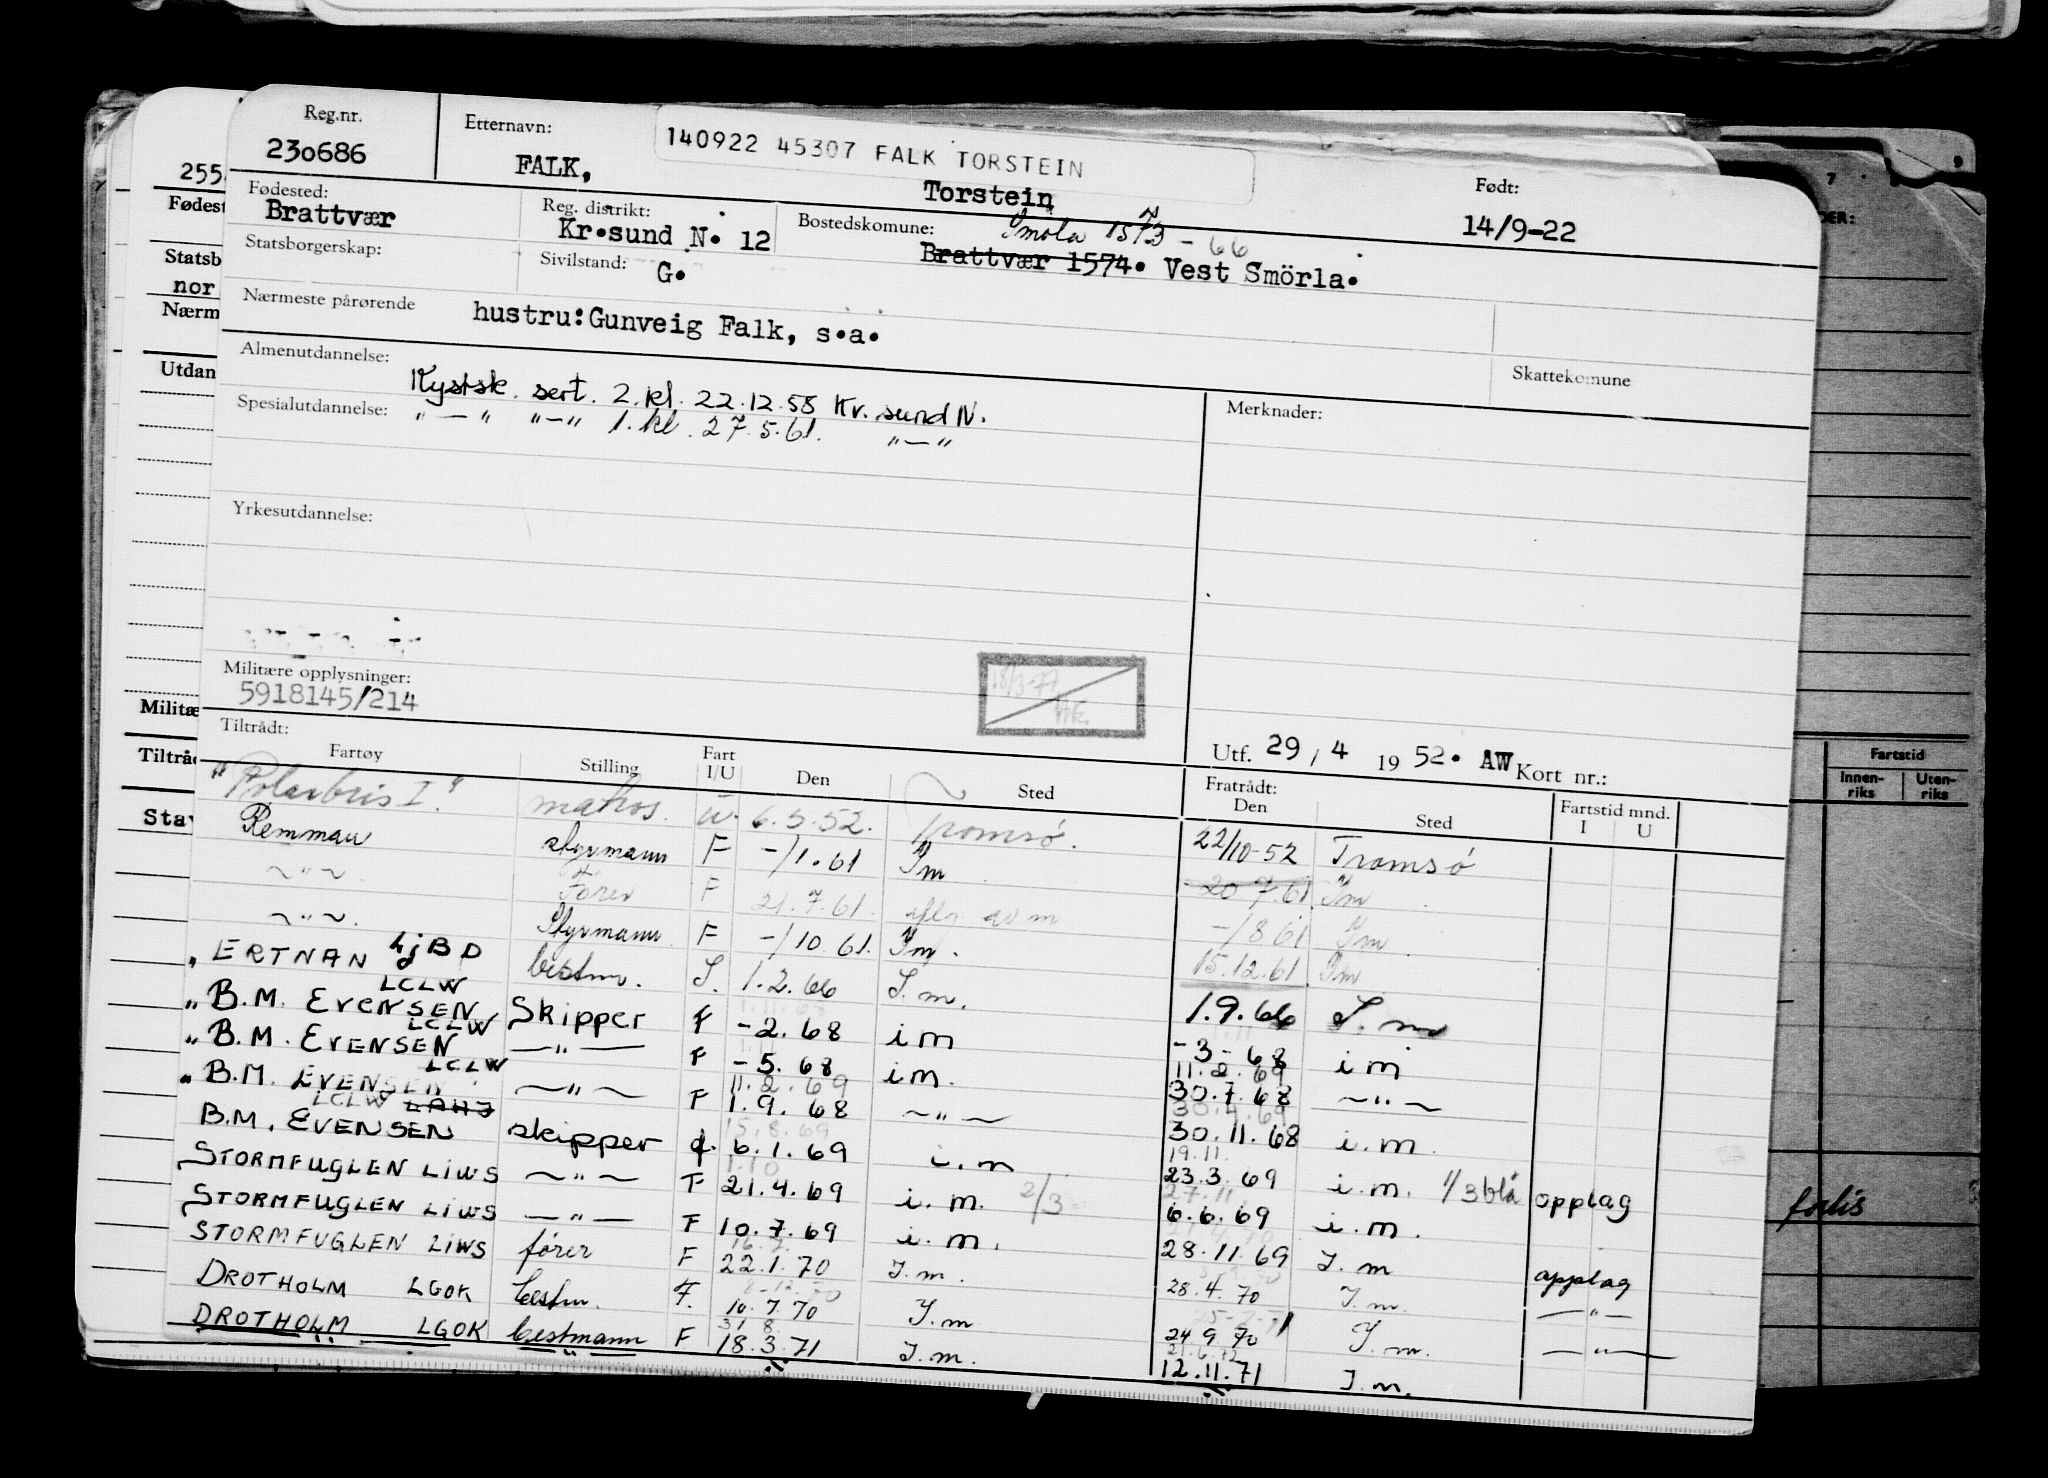 Reg.nr.
230686
Etternavn:
FALK,
140922 45307 FALK TORSTEIN
Torstein
Født:
14/9-22
Fødested:
Brattvær
Reg. distrikt:
Kr.sund N. 12
Bostedskomune:
Smöla 1573 - 66
Brattvær 1574. Vest Smörla.
Statsborgerskap:
Sivilstand:
G.
Nærmeste pårørende
hustru:Gunveig Falk, s.a.
Skattekomune
Almenutdannelse:
Kystsk. sert. 2. kl. 22.12.58 Kr. sund N.
Spesialutdannelse:
" — " "—" 1. kl. 27.5.61. "—"
Merknader:
Yrkesutdannelse:
Militære opplysninger:
5918145/214
18/3-77
Utf. 29 / 4 1952. AW Kort nr.:
Tiltrådt:
Fartøy Stilling Fart I/U Den Sted
Fratrådt: Den Sted Fartstid mnd. I U
"Polarbris I." matros. u. 6.5.52. Tromsö. 22/10-52 Tromsö
Remman styrmann F -/1.61 Im 20.7.61. Im
~"~. Förer F 21.7.61. -/8 61 Im
~"~. Styrmann F -/10.61. Im. 15.12.61. Im
" ERTNAN LJBD bestm. I. 1.2.66 I.m. 1.9.66 I.m
" B.M. EVENSEN LCLW Skipper F -2.68 im -3-68 im
" B.M. EVENSEN LCLW —"— F -5.68 im. 11.2.69 30.7.68 ~"~
" B.M. EVENSEN LCLW ~"~ F 11.2.69 1.9.68 ~"~ 30.4.69 30.11.68 i.m
B.M. EVENSEN LCLW LAHJ skipper f. 15.8.69 6.1.69 i.m 19.11. 23.3.69 i.m. 1/3 blå opplag
STORMFUGLEN LIWS ~"~ F 1.10 21.4.69 i.m. 2/3 27.11. 6.6.69 i.m.
STORMFUGLEN LIWS —"— F 10.7.69 i.m. 28.11.69 I.m opplag
STORMFUGLEN LIWS fører F 22.1.70 I.m. 28.4.70 I.m. —"—
DROTHOLM LGOK bestm. F. 10.7.70 I.m 24.9.70 I.m. —"—
DROTHOLM LGOK bestmann F 31.8. 18.3.71 I.m. 21.6.72 12.11.71 I.m.
255
Fødest
Statsb
nor
Nærm
Utdan
Militæ
Tiltråd
Sta
7
9
DER:
Fartstid
Innen-riks
Uten-riks